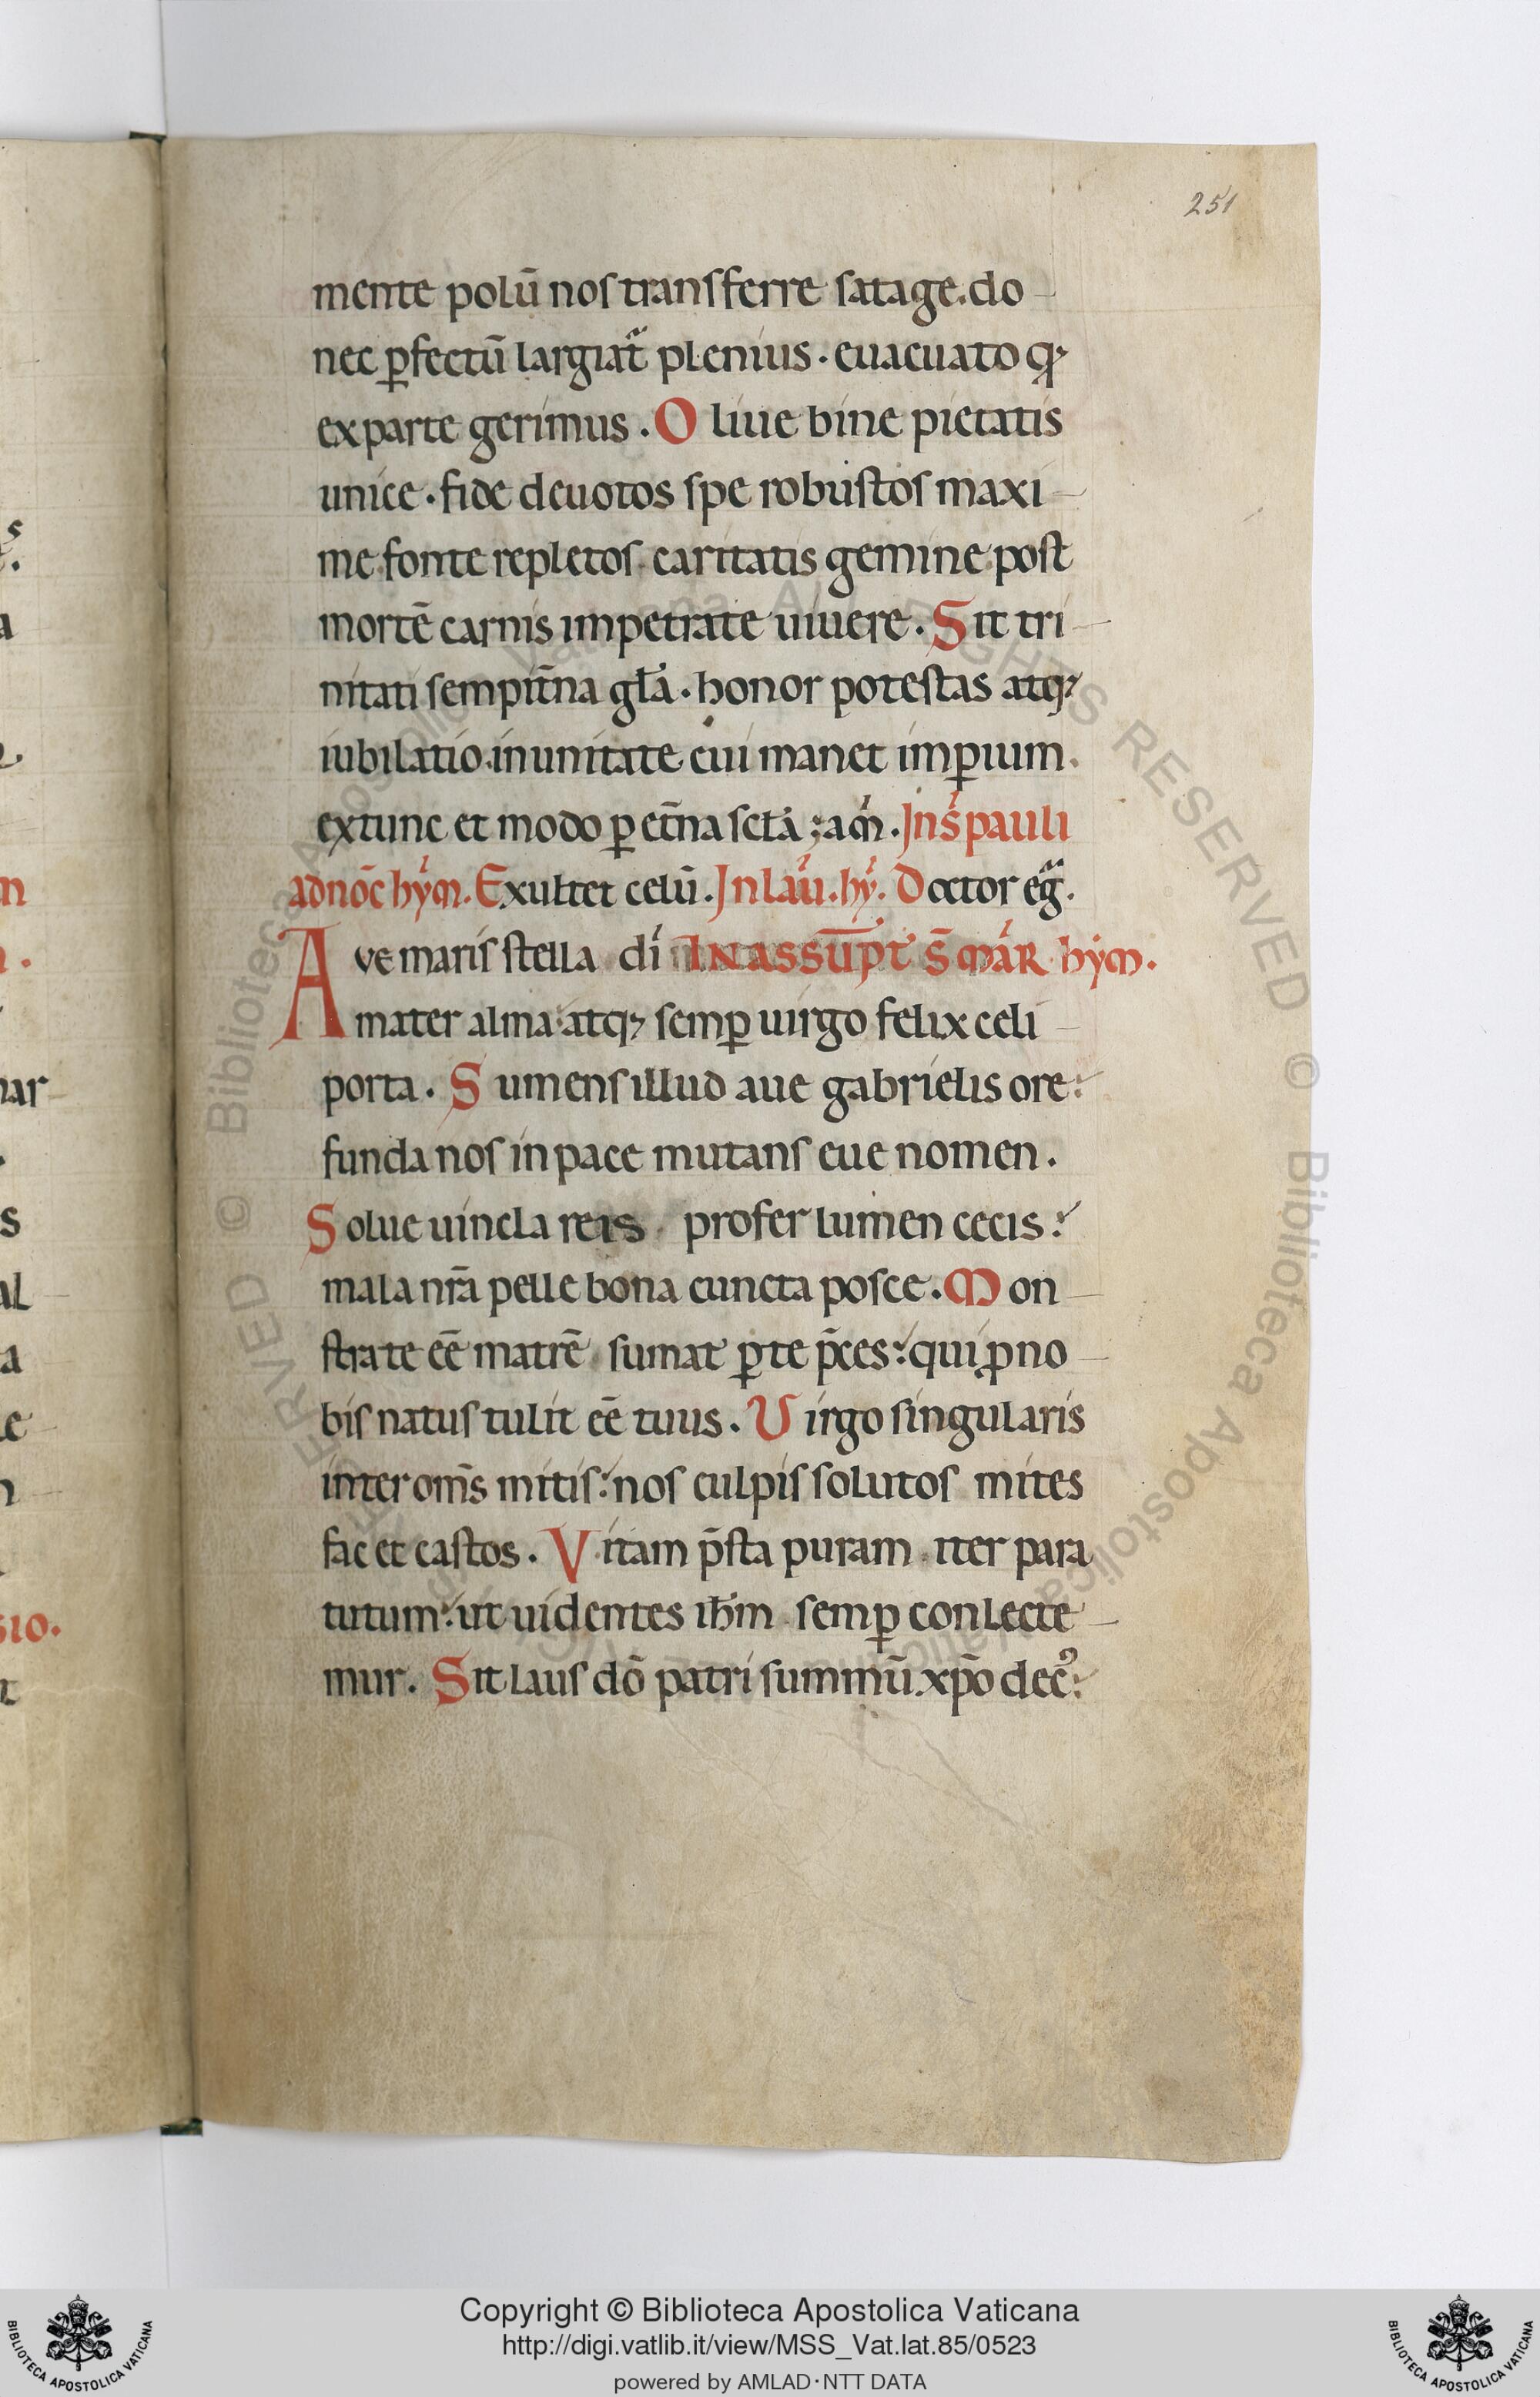 251
mente polū nos transferre satage. do
nec ꝑfectū largiat̃ plenius. euacuato qđ
ex parte gerimus. Oliue bine pietatis
unice. fide deuotos spe robustos maxi
me fonte repletos caritatis gemine post
mortē carnis impetrate uiuere. Sit tri
nitati sempit̄na gl̄a. honor potestas atqꝫ
iubilatio in unitate cui manet imꝑium.
ex tunc et modo ꝑ et̄na sc̄la; am̄. In s̄ pauli
ad noc̄ hym̄. Exultet celū. In lau. hy. Doctor eg̃.
Ave maris stella di IN ASSŪPT S̄ MAR hym.
mater alma atqꝫ semꝑ uirgo felix celi
porta. Sumens illud aue gabrielis ore:
funda nos in pace mutans eue nomen.
Solue uincla reis profer lumen cecis:
mala nr̄a pelle bona cuncta posce. Mon
stra te eē matrē sumat ꝑ te p̄ces: qui ꝓ no
bis natus tulit eē tuus. Uirgo singularis
inter om̄s mitis: nos culpis solutos mites
fac et castos. Vitam p̄sta puram iter para
tutum: ut uidentes ih̄m semꝑ conlecte
mur. Sit laus dō patri summū xp̄o decꝰ:
n
ar
s
al
a
sio.
Copyright © Biblioteca Apostolica Vaticana
http://digi.vatlib.it/view/MSS_Vat.lat.85/0523
powered by AMLAD·NTT DATA
BIBLIOTECA APOSTOLICA VATICANA
BIBLIOTECA APOSTOLICA VATICANA